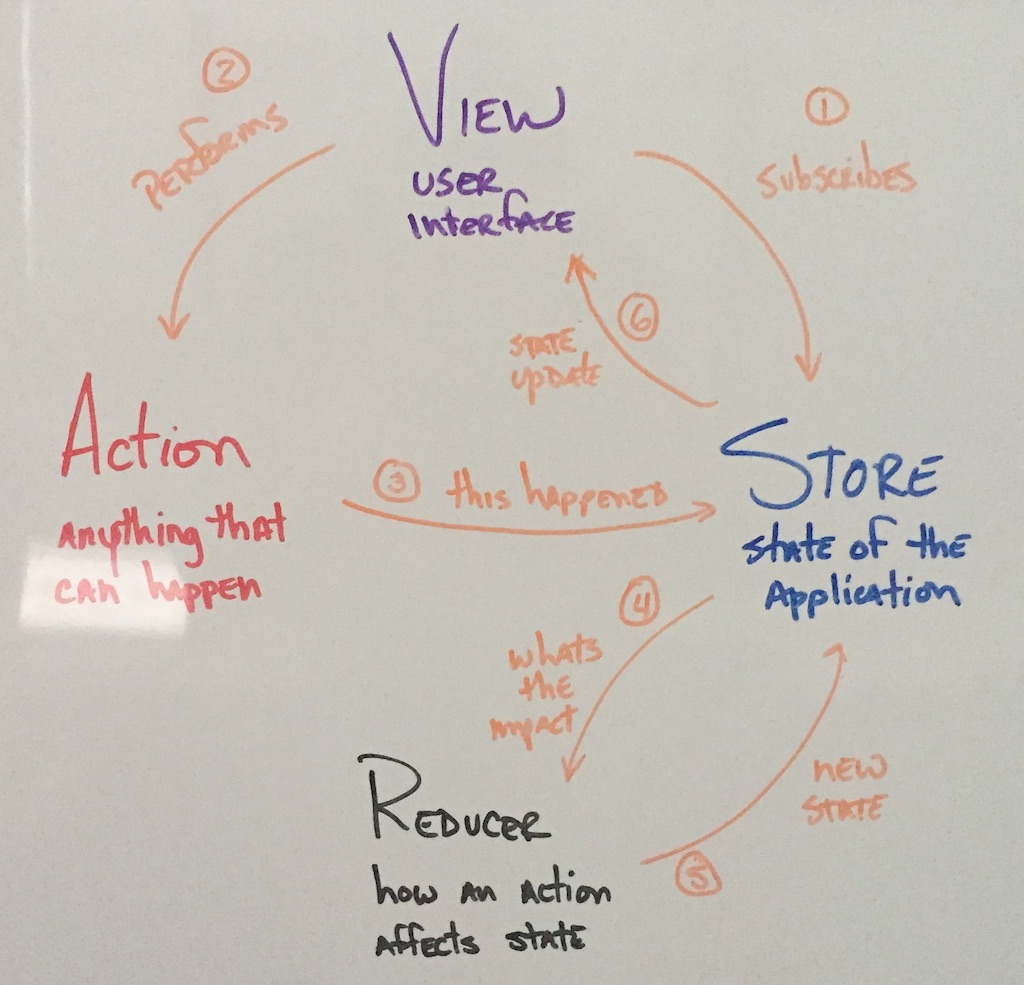 2
Performs
1
Subscribes
View
user
interface
6
state
update
Action
anything that
can happen
3 this happened
Store
state of the
Application
4
whats
the
impact
Reducer
how an action
affects state
new
state
5